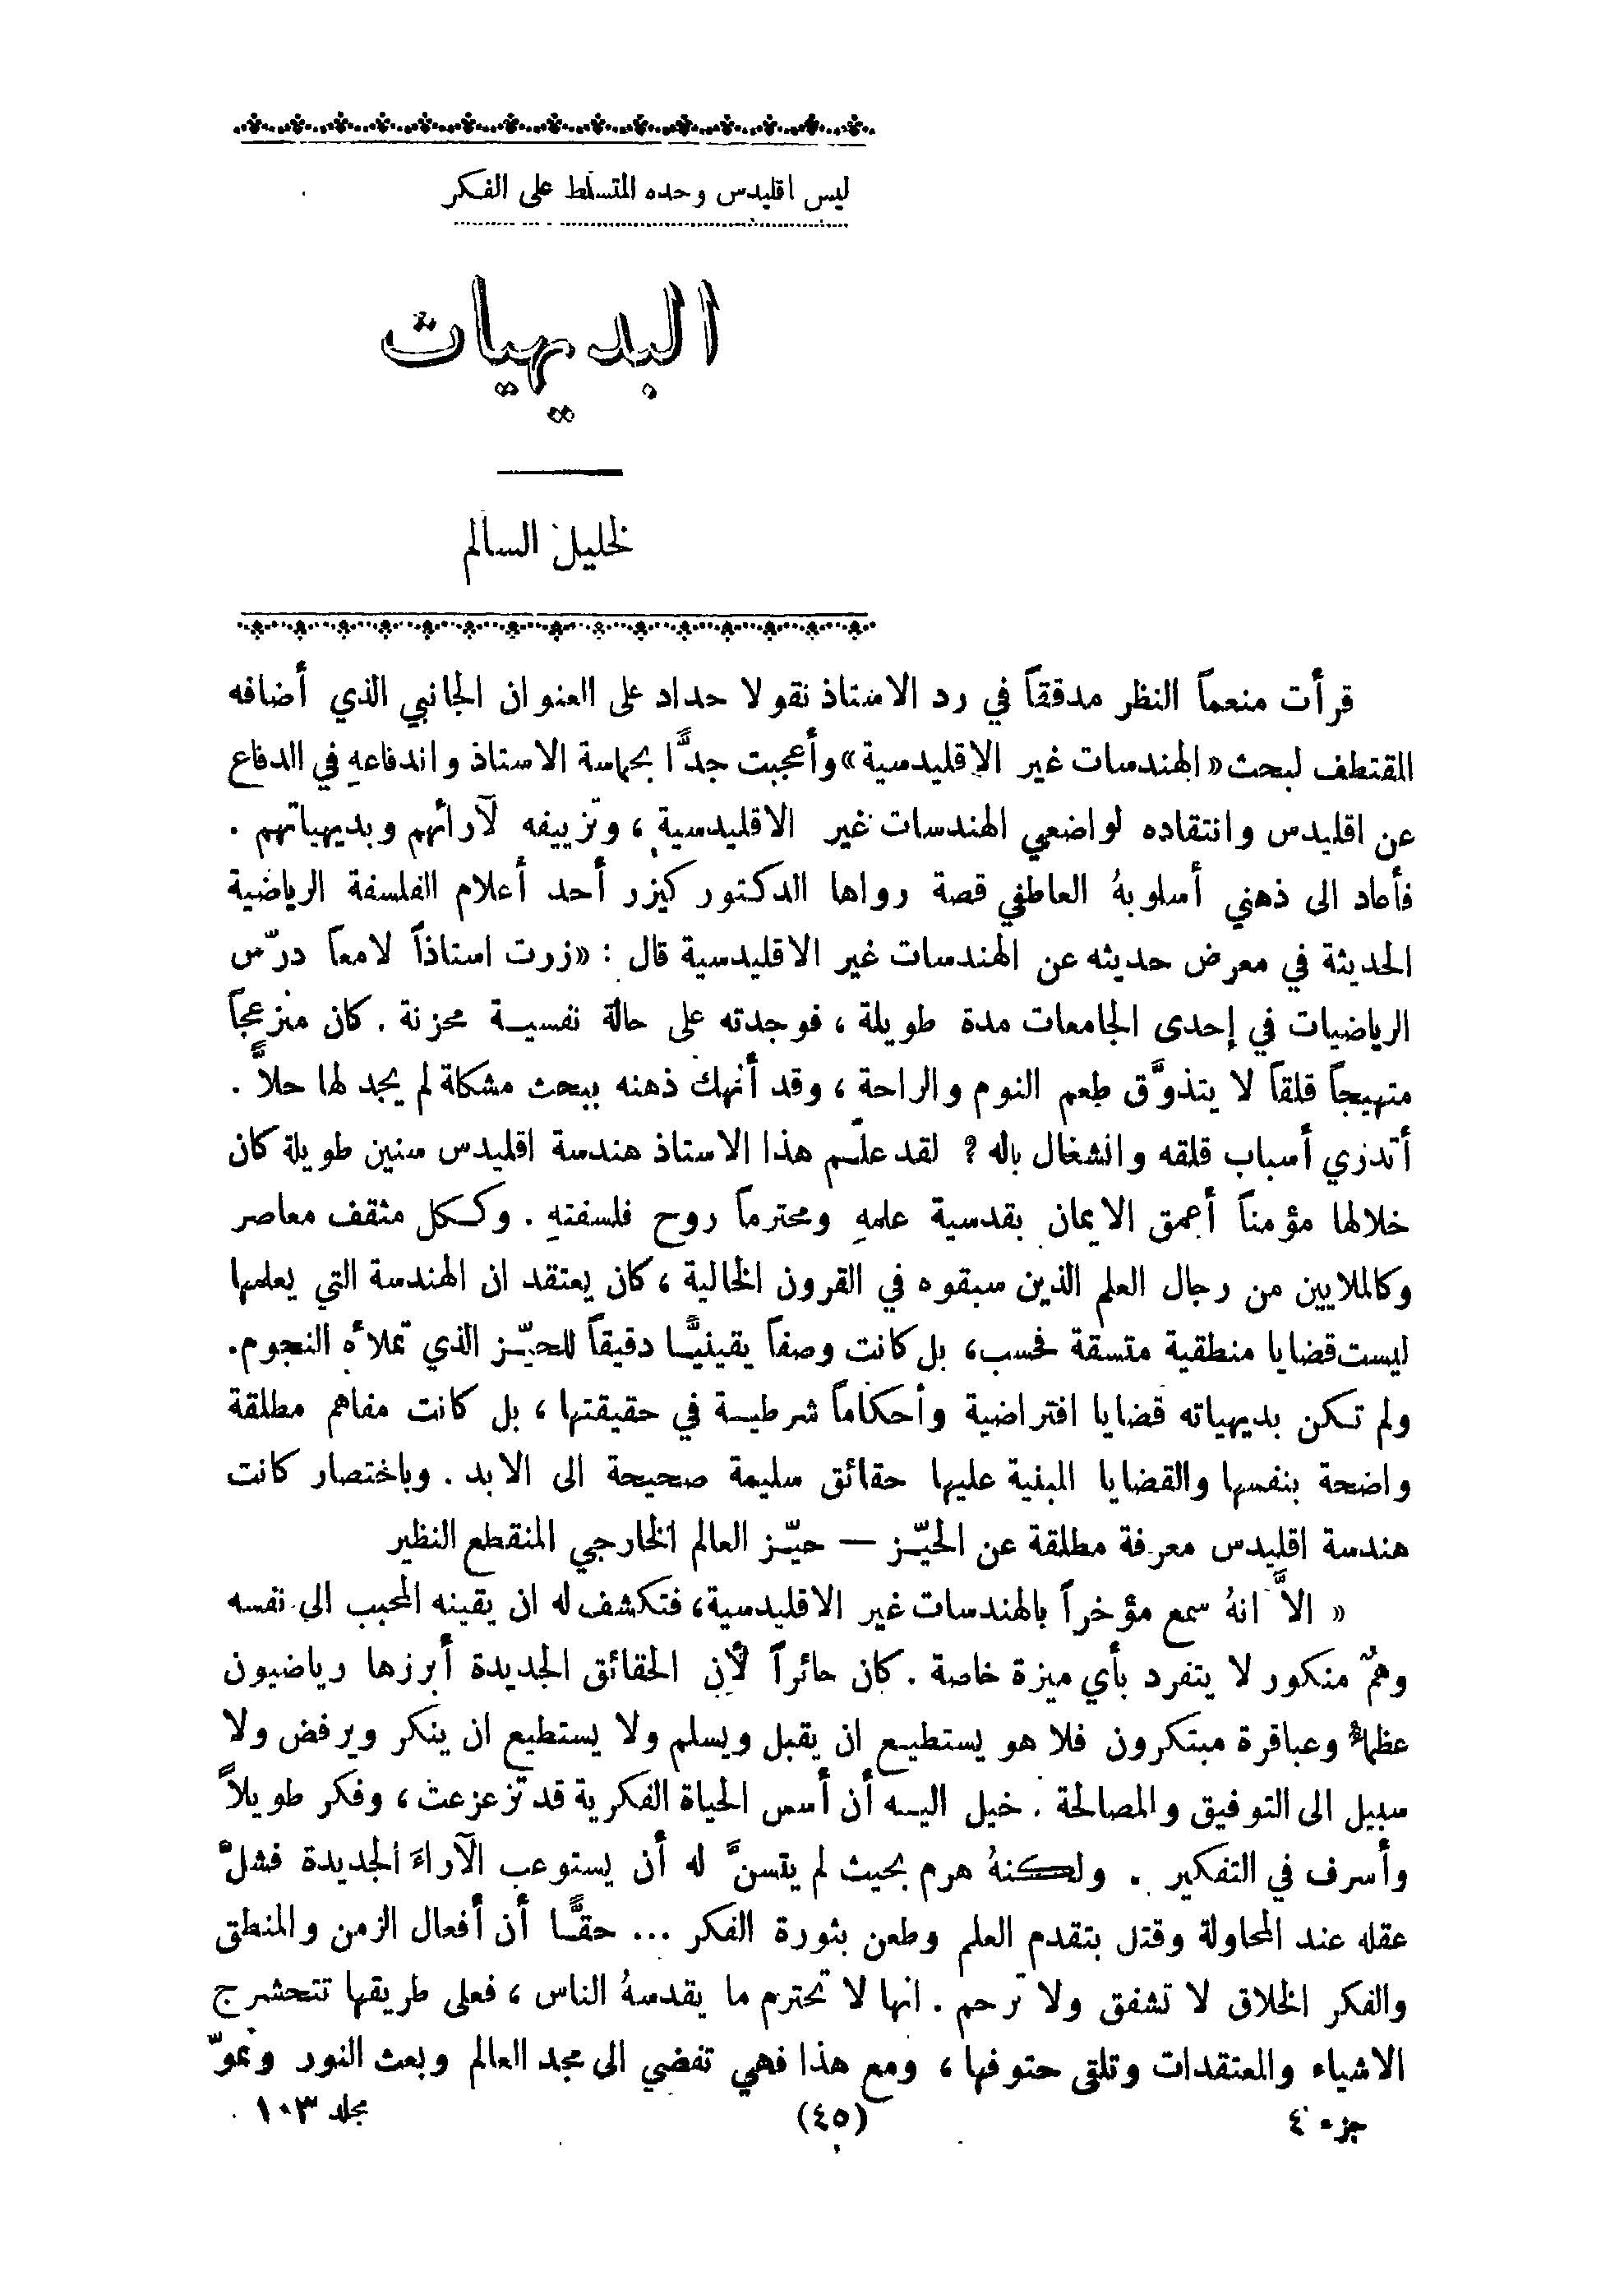 ليس اقليدس وحده المتسلط على الفكر
البديهيات
لخليل السالم
قرأت منعماً النظر مدققاً في رد الاستاذ نقولا حداد على العنوان الجانبي الذي أضافه
المقتطف لبحث «الهندسات غير الاقليدسية» وأعجبت جدًّا بحماسة الاستاذ واندفاعهِ في الدفاع
عن اقليدس وانتقاده لواضعي الهندسات غير الاقليدسية ، وتزييفه لآرائهم وبديهياتهم .
فأعاد الى ذهني أسلوبهُ العاطفي قصة رواها الدكتور كيزر أحد أعلام الفلسفة الرياضية
الحديثة في معرض حديثه عن الهندسات غير الاقليدسية قال : «زرت استاذاً لامعاً درّس
الرياضيات في إحدى الجامعات مدة طويلة ، فوجدته على حالة نفسيـة محزنة . كان منزعجاً
متهيجاً قلقاً لا يتذوَّق طعم النوم والراحة ، وقد أنهك ذهنه ببحث مشكلة لم يجد لها حلاًّ .
أتدري أسباب قلقه وانشغال باله ؟ لقد علّـم هذا الاستاذ هندسة اقليدس سنين طويلة كان
خلالها مؤمناً أعمق الايمان بقدسية علمهِ ومحترماً روح فلسفتهِ . وكـكل مثقف معاصر
وكالملايين من رجال العلم الذين سبقوه في القرون الخالية ، كان يعتقد ان الهندسة التي يعلمها
ليست قضايا منطقية متسقة فحسب ، بل كانت وصفاً يقينيًّـا دقيقاً للحيّـز الذي تملأه النجوم.
ولم تـكن بديهياته قضايا افتراضية وأحكاماً شرطيـة في حقيقتها ، بل كانت مفاهم مطلقة
واضحة بنفسها والقضايا المبنية عليها حقائق سليمة صحيحة الى الابد . وباختصار كانت
هندسة اقليدس معرفة مطلقة عن الحيّـز — حيّـز العالم الخارجي المنقطع النظير
« الاَّ انهُ سمع مؤخراً بالهندسات غير الاقليدسية ، فتكشف له ان يقينه المحبب الى نفسه
وهمٌ منكور لا يتفرد بأي ميزة خاصة . كان حائراً لأن الحقائق الجديدة أبرزها رياضيون
عظماء وعباقرة مبتكرون فلا هو يستطيـع ان يقبل ويسلم ولا يستطيع ان ينكر ويرفض ولا
سبيل الى التوفيق والمصالحة . خيل اليـه أن أسس الحياة الفكرية قد تزعزعت ، وفكر طويلاً
وأسرف في التفكير . ولـكنهُ هرم بحيث لم يتسنَّ له أن يستوعب الآراءَ الجديدة فشلَّ
عقله عند المحاولة وقتل بتقدم العلم وطعن بثورة الفكر ... حقًّـا أن أفعال الزمن والمنطق
والفكر الخلاق لا تشفق ولا ترحم . انها لا تحترم ما يقدسهُ الناس ، فعلى طريقها تتحشرج
الاشياء والمعتقدات وتلقى حتوفها ، ومع هذا فهي تفضي الى مجد العالم وبعث النور ونموّ
جزء ٤ (٤٥) مجلد ١٠٣